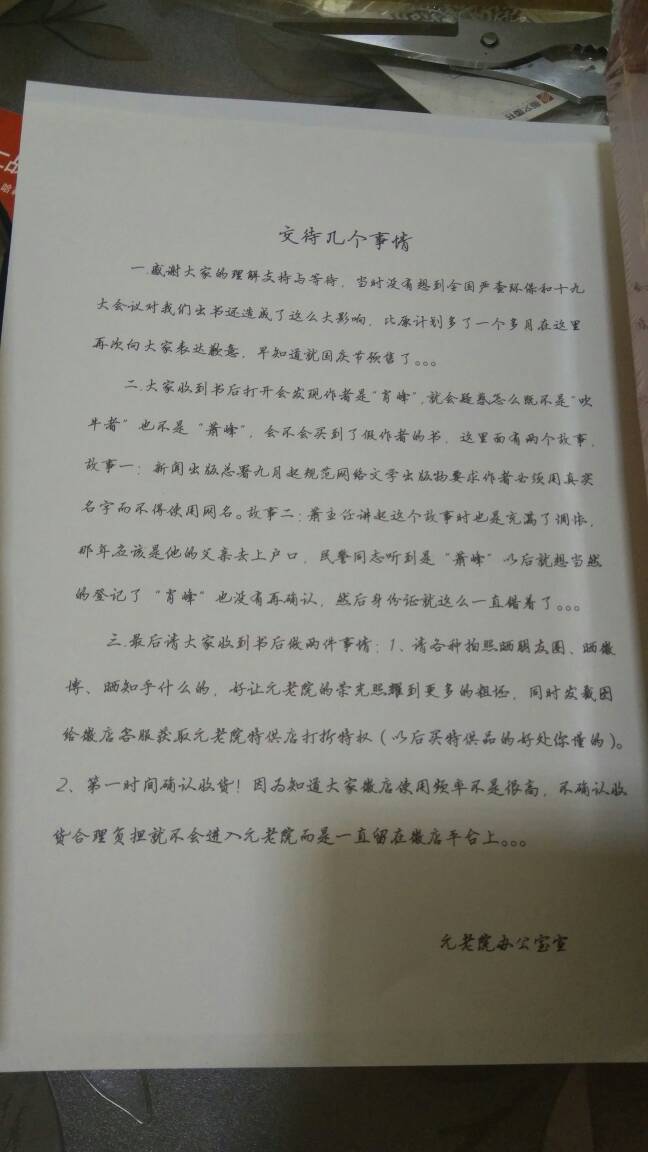 交待几个事情
一.感谢大家的理解支持与等待，当时没有想到全国严查环保和十九
大会议对我们出书还造成了这么大影响，比原计划多了一个多月在这里
再次向大家表达歉意，早知道就国庆节预售了。。。
二.大家收到书后打开会发现作者是“肖峰”，就会疑惑怎么既不是“吹
牛者”也不是“萧峰”，会不会买到了假作者的书，这里面有两个故事，
故事一：新闻出版总署九月起规范网络文学出版物要求作者必须用真实
名字而不得使用网名。故事二：萧主任讲起这个故事时也是充满了调侃，
那年应该是他的父亲去上户口，民警同志听到是“萧峰”以后就想当然
的登记了“肖峰”也没有再确认，然后身份证就这么一直错着了。。。
三.最后请大家收到书后做两件事情：1、请各种拍照晒朋友圈、晒微
博、晒知乎什么的，好让元老院的荣光照耀到更多的粗坯，同时发截图
给微店客服获取元老院特供店打折特权（以后买特供品的好处你懂的）。
2、第一时间确认收货！因为知道大家微店使用频率不是很高，不确认收
货合理负担就不会进入元老院而是一直留在微店平台上。。。
元老院办公室宣